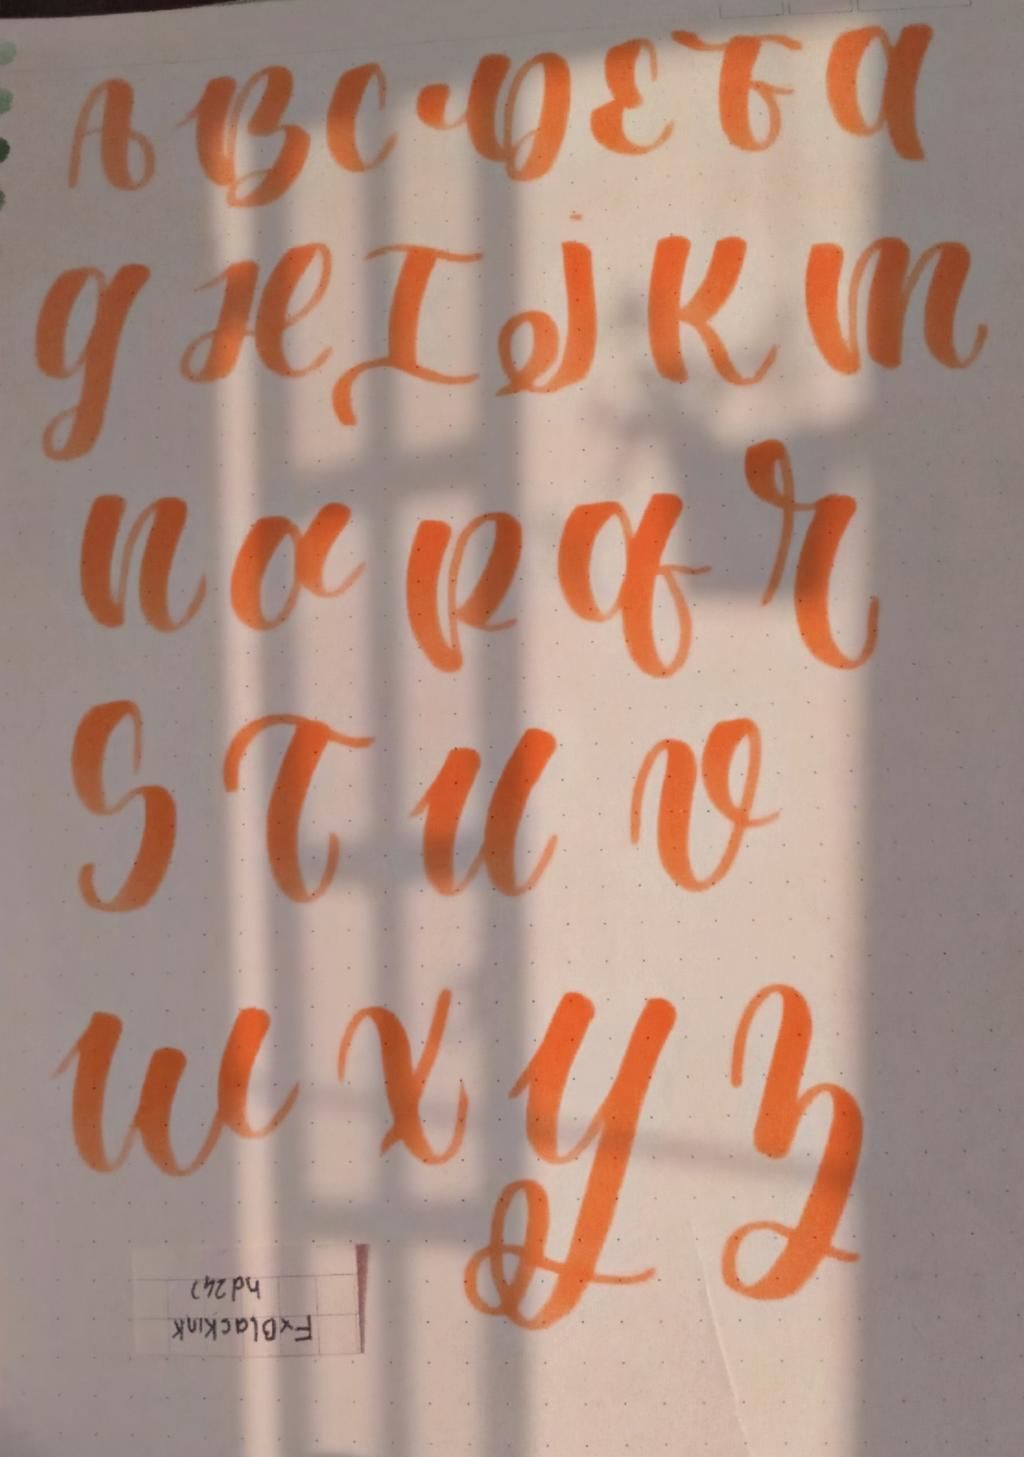 A B C D E F a
g H I J K m
n o p q r
S T U V
W X Y Z
FxBlackink
hd247